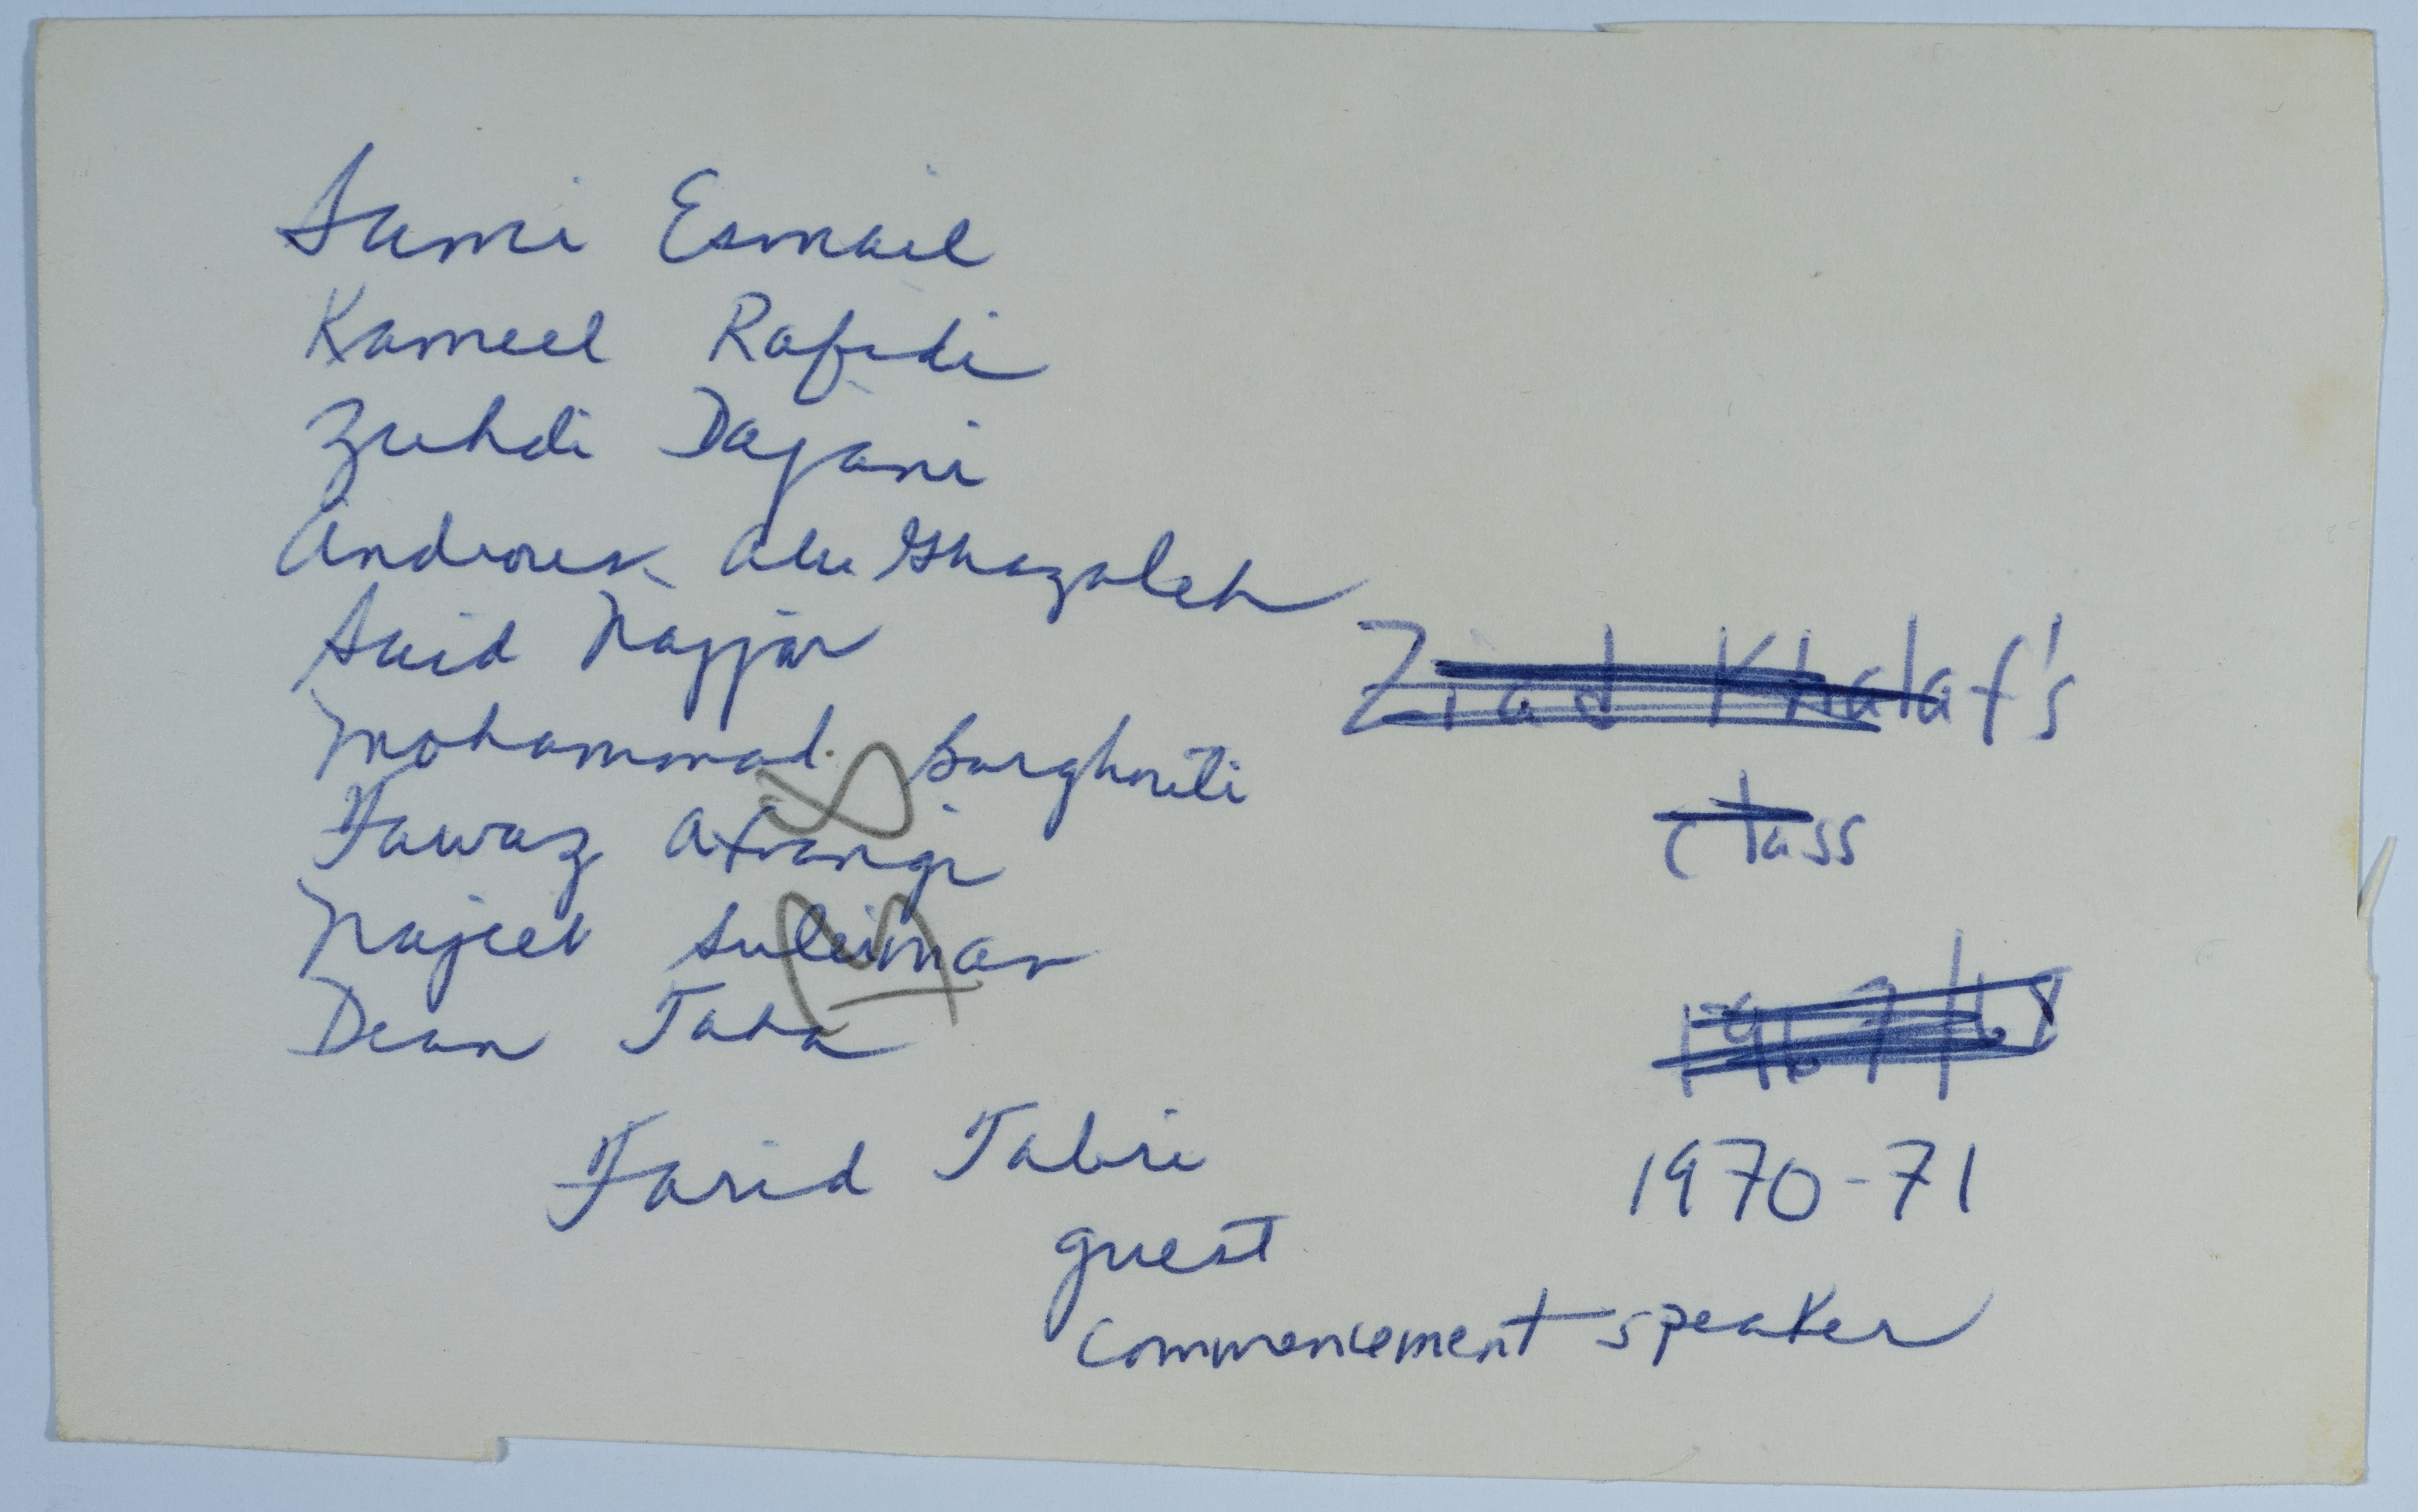 Sami Esmail
Kameel Rafidi
Zuhdi Dajani
Androus Abu Ghazaleh
Said Najjar
Mohammad Barghouti
Fawaz Afrangi
Najeeb Suleiman
Dean Taha
Farid Tabri
guest
commencement speaker
Ziad Khalaf's
class
1967/68
1970-71